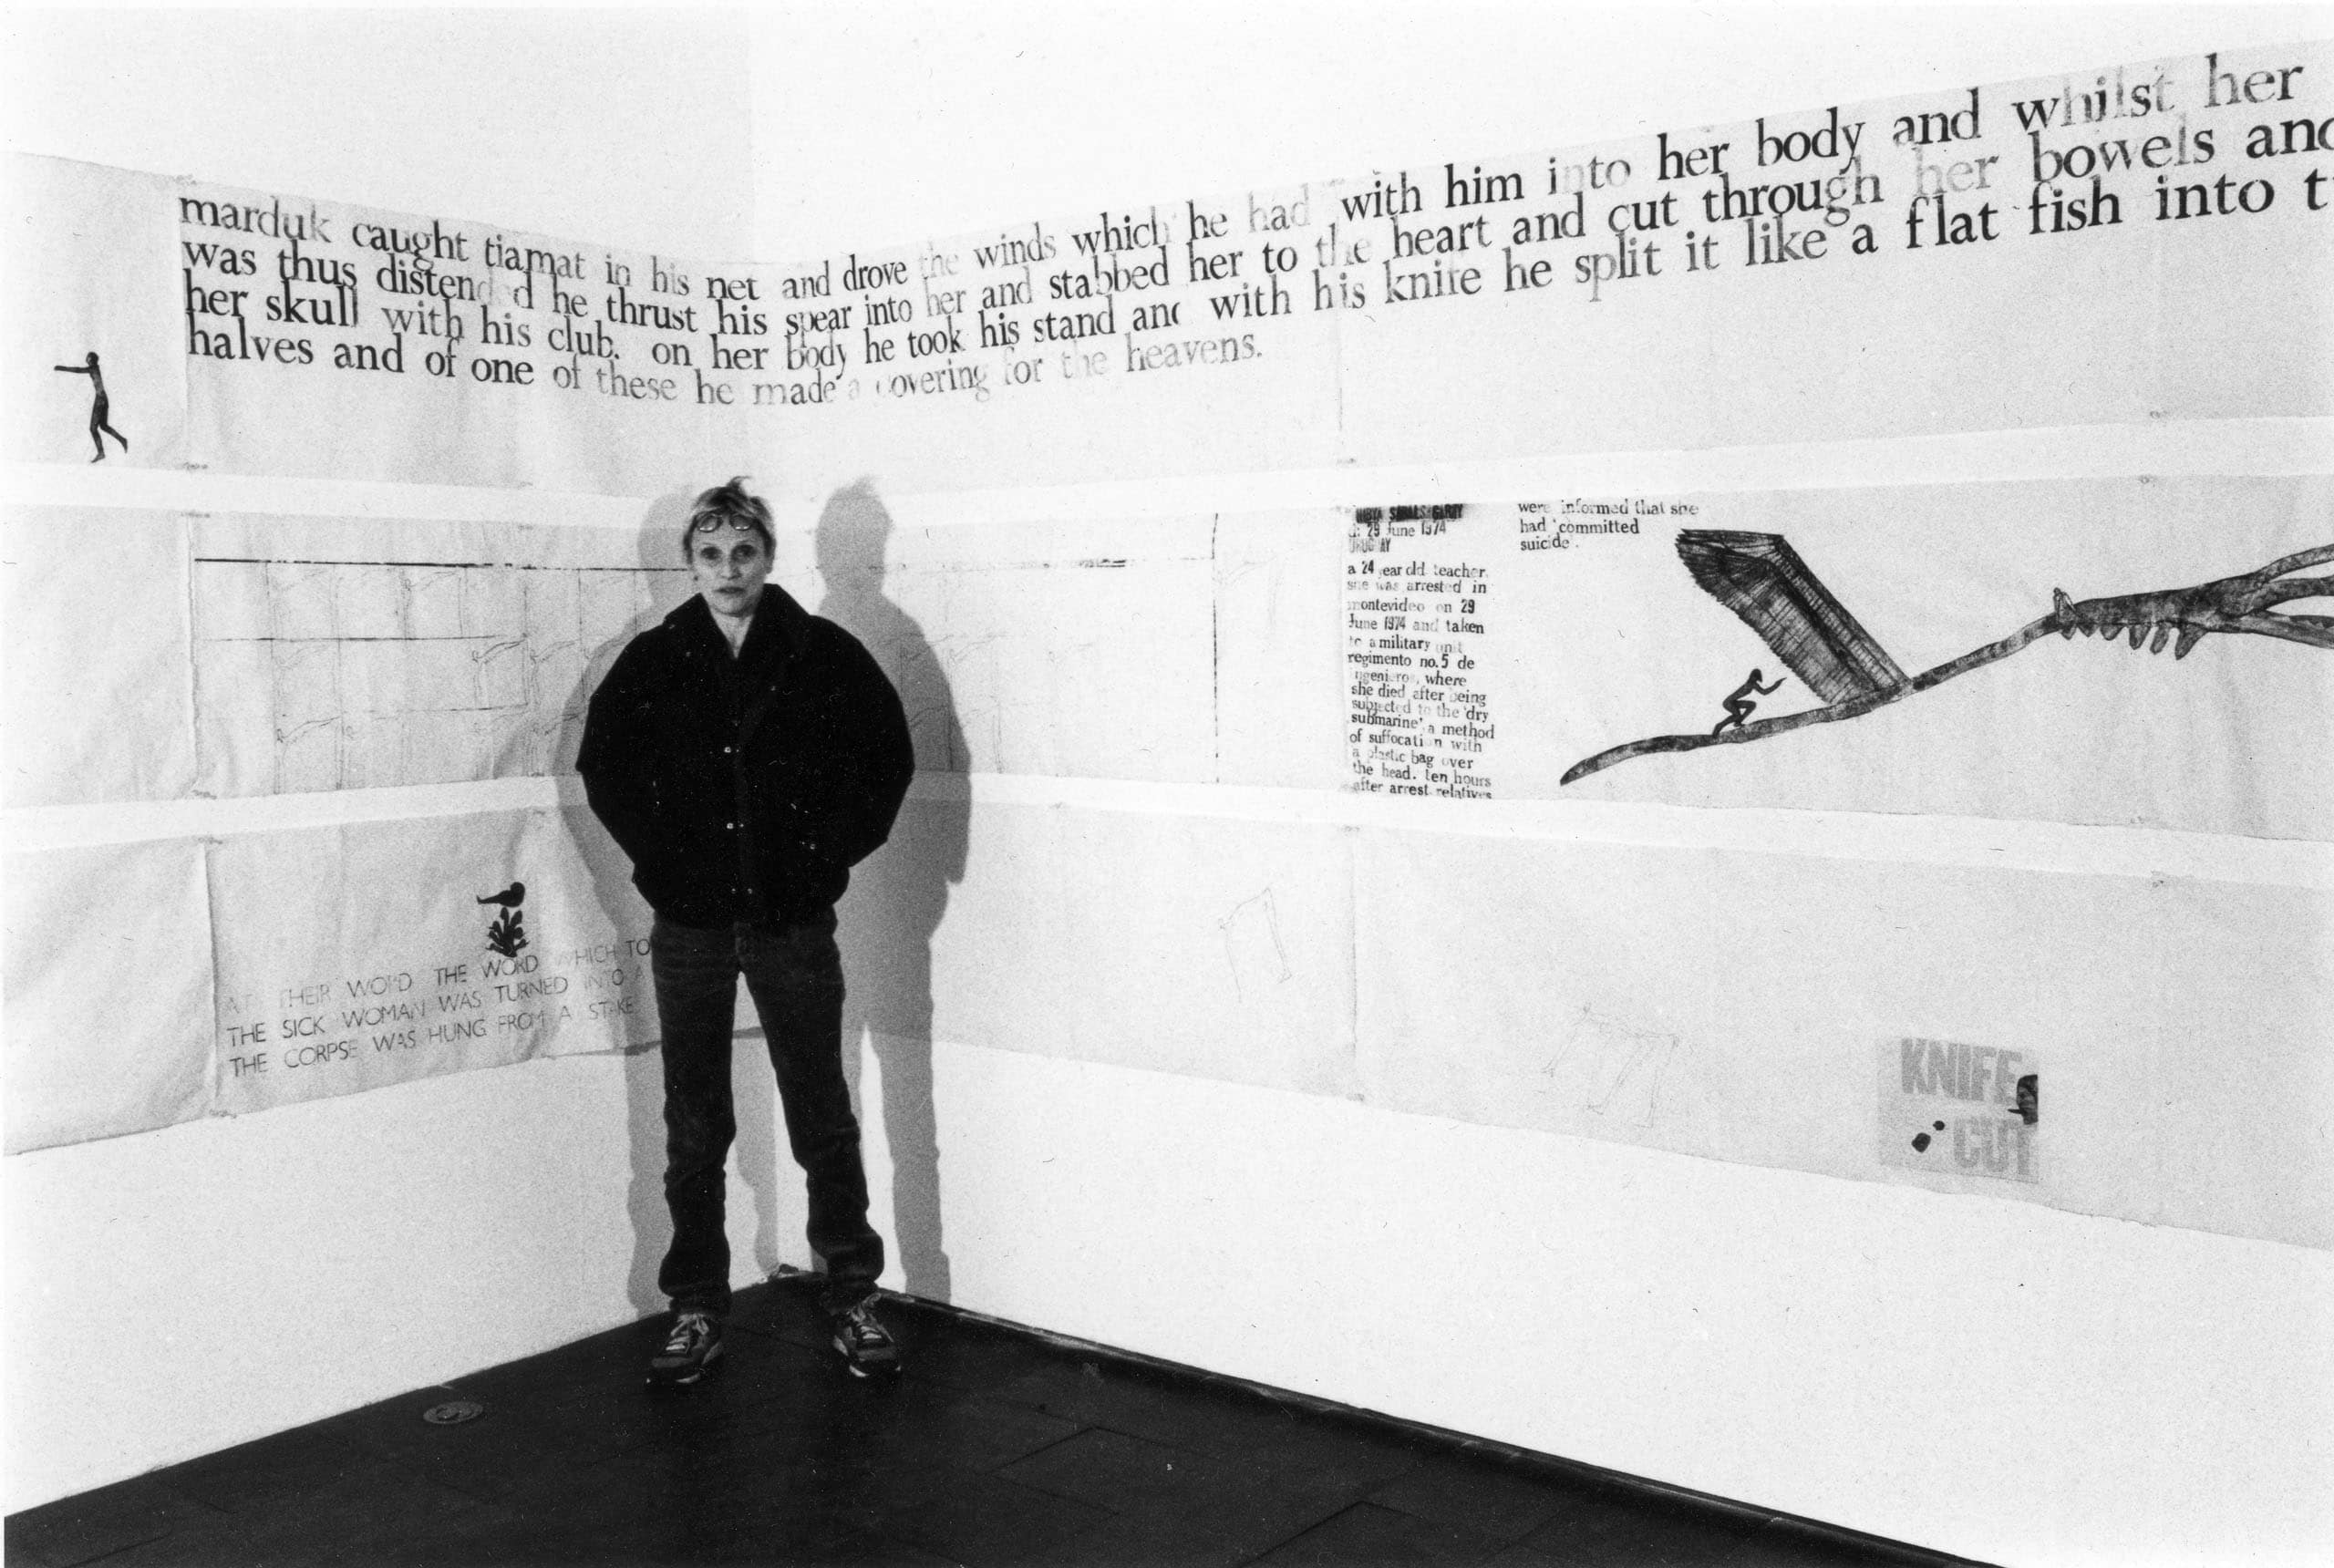 marduk caught tiamat in his net and drove the winds which he had with him into her body and whilst her
was thus distended he thrust his spear into her and stabbed her to the heart and cut through her bowels and
her skull with his club. on her body he took his stand and with his knife he split it like a flat fish into
halves and of one of these he made a covering for the heavens.
29 June 1974
URUGUAY
a 24 year old teacher,
she was arrested in
montevideo on 29
June 1974 and taken
to a military unit
regimento no. 5 de
ingenieros, where
she died after being
subjected to the 'dry
submarine' a method
of suffocation with
a plastic bag over
the head. ten hours
after arrest relatives
were informed that she
had 'committed
suicide'.
AT THEIR WORD THE WORD WHICH TO
THE SICK WOMAN WAS TURNED INTO A
THE CORPSE WAS HUNG FROM A STAKE
KNIFE
CUT